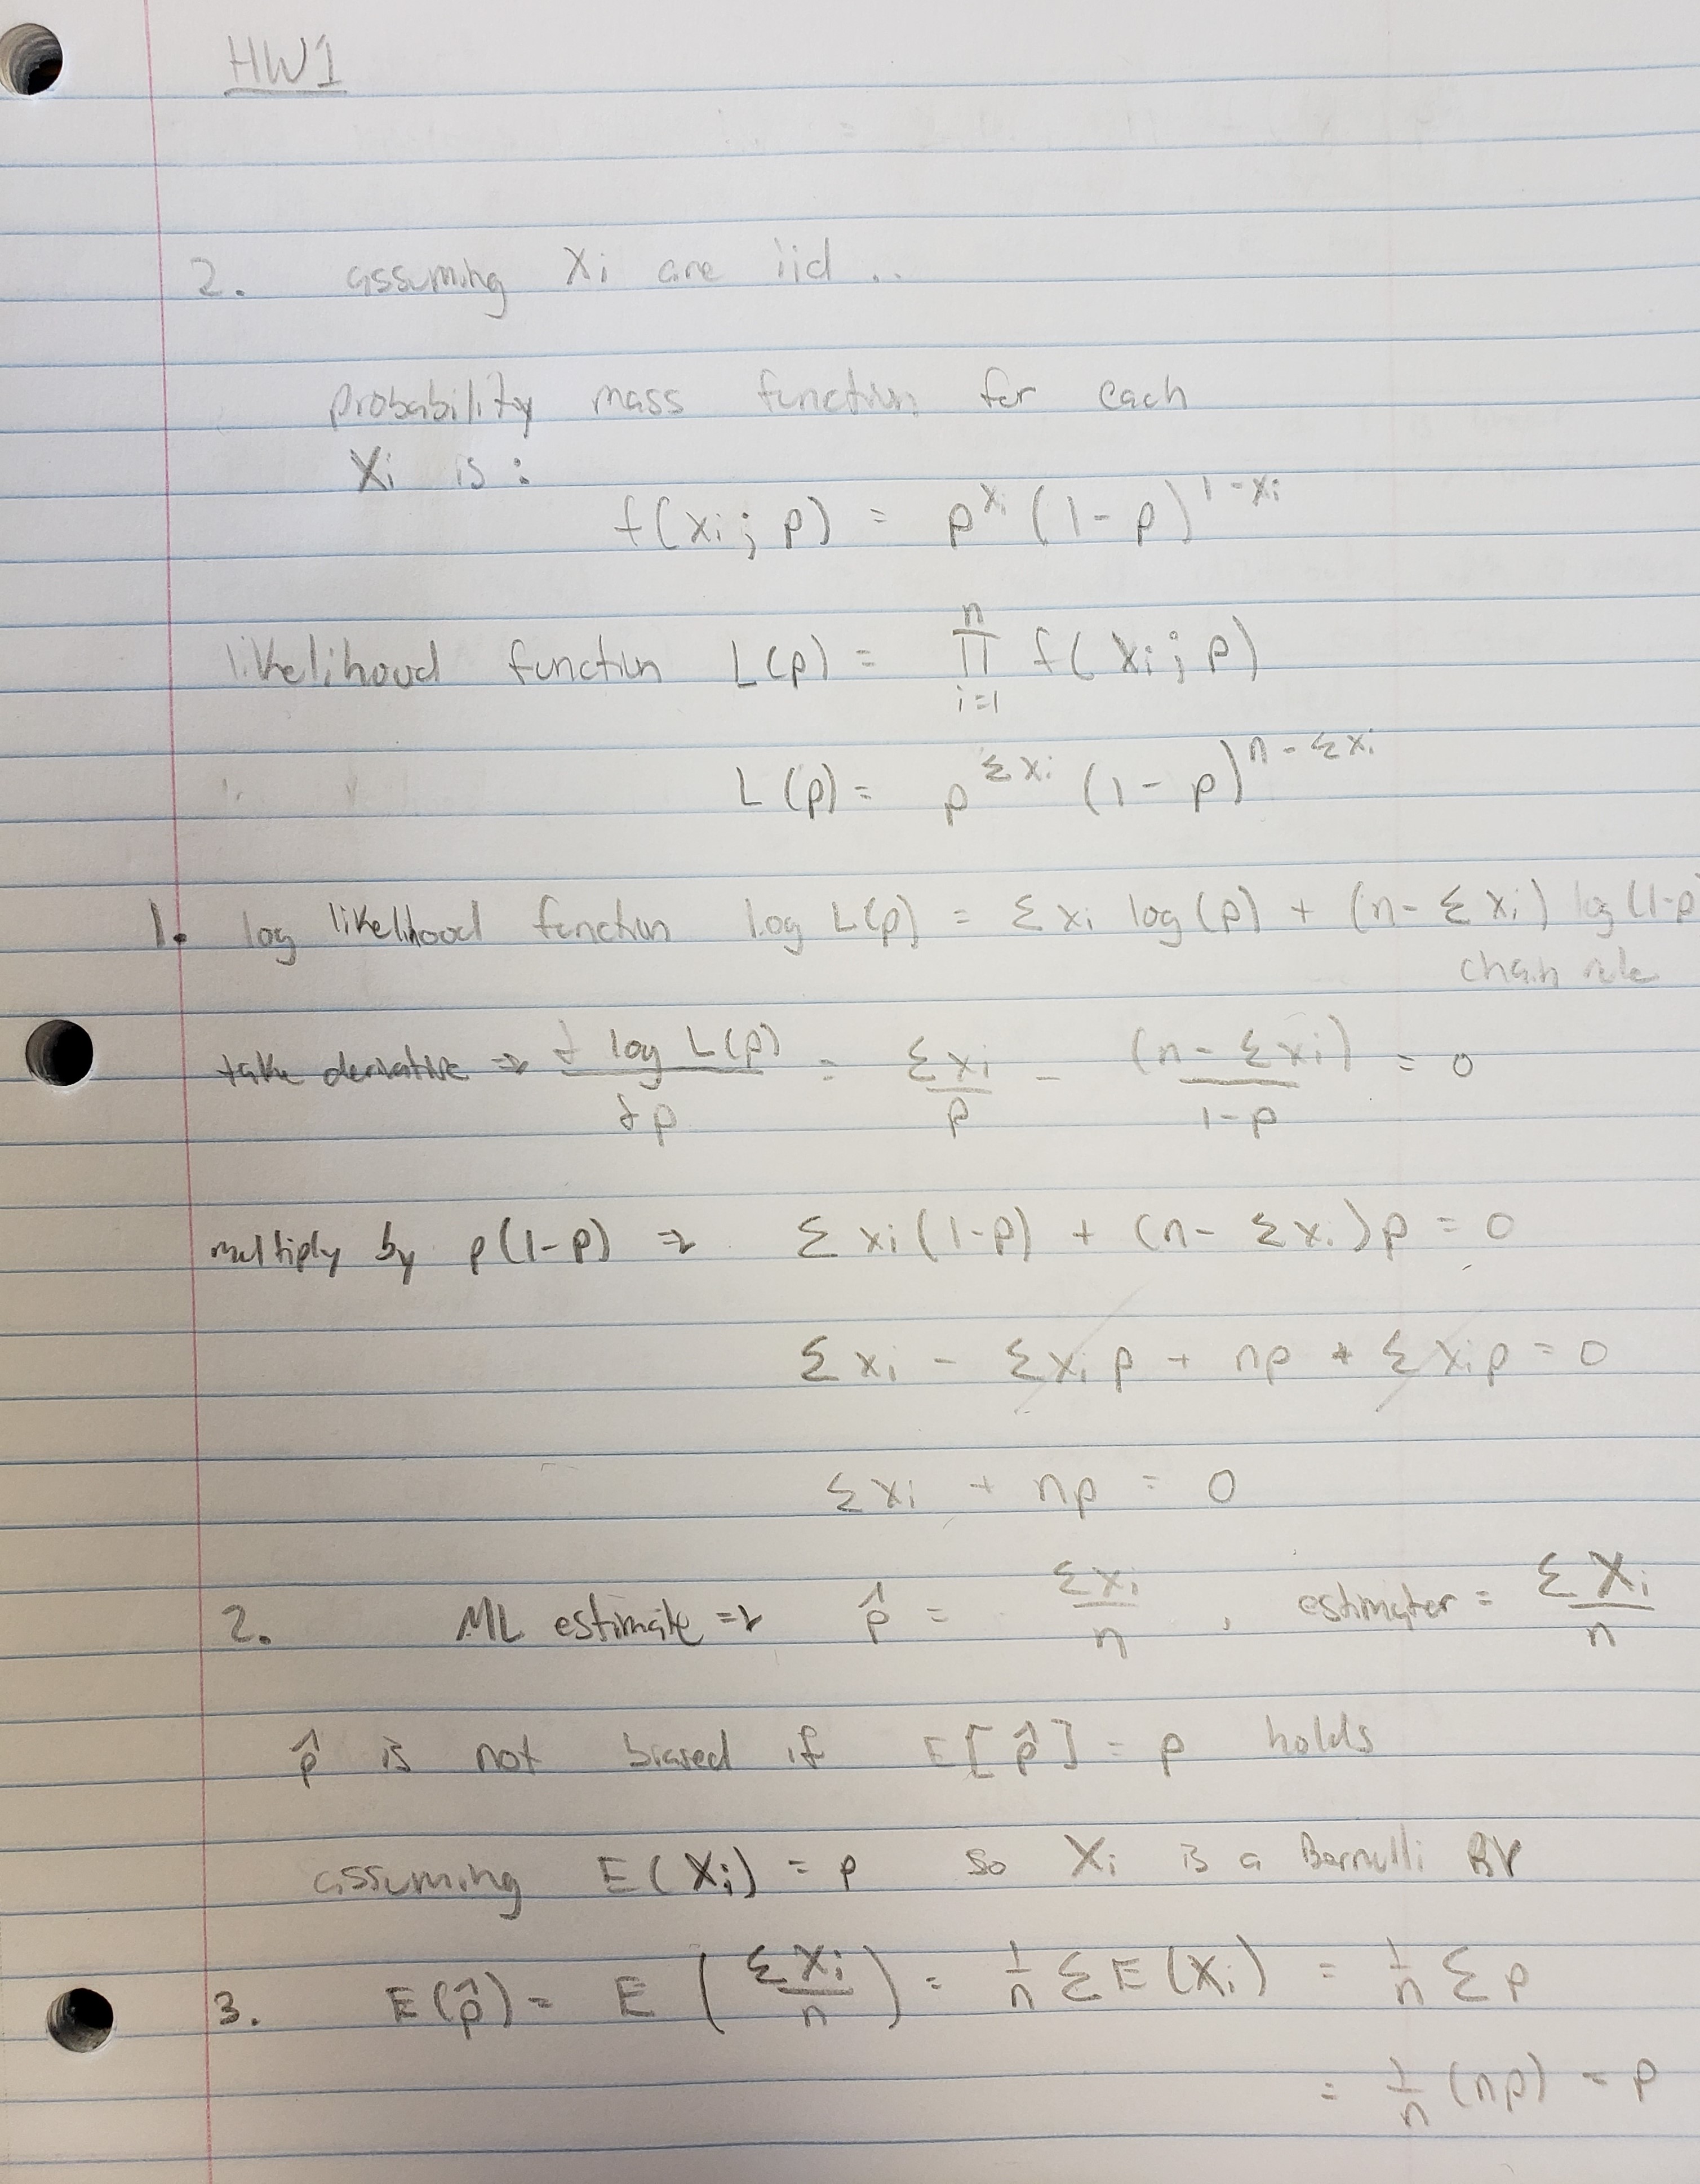 HW1
2. assuming Xi are iid ..
probability mass function for each
Xi is :
f(xi ; p) = p^xi (1 - p)^1-xi
likelihood function L(p) = n ∏ i=1 f(Xi ; p)
L(p) = p^Σxi (1 - p)^n - Σxi
1. log likelihood function log L(p) = Σ xi log(p) + (n - Σ xi) log(1-p)
chain rule
take derivative ⇒ d log L(p) / dp = Σxi / p - (n - Σxi) / 1-p = 0
multiply by p(1-p) ⇒ Σ xi (1-p) + (n - Σxi) p = 0
Σ xi - Σxi p + np + Σxi p = 0
Σxi + np = 0
2. ML estimate ⇒ p̂ = Σxi / n , estimater = ΣXi / n
p̂ is not biased if E[p̂] = p holds
assuming E(Xi) = p so Xi is a Bernulli RV
3. E(p̂) = E ( ΣXi / n ) = 1/n Σ E(Xi) = 1/n Σ p
= 1/n (np) = p